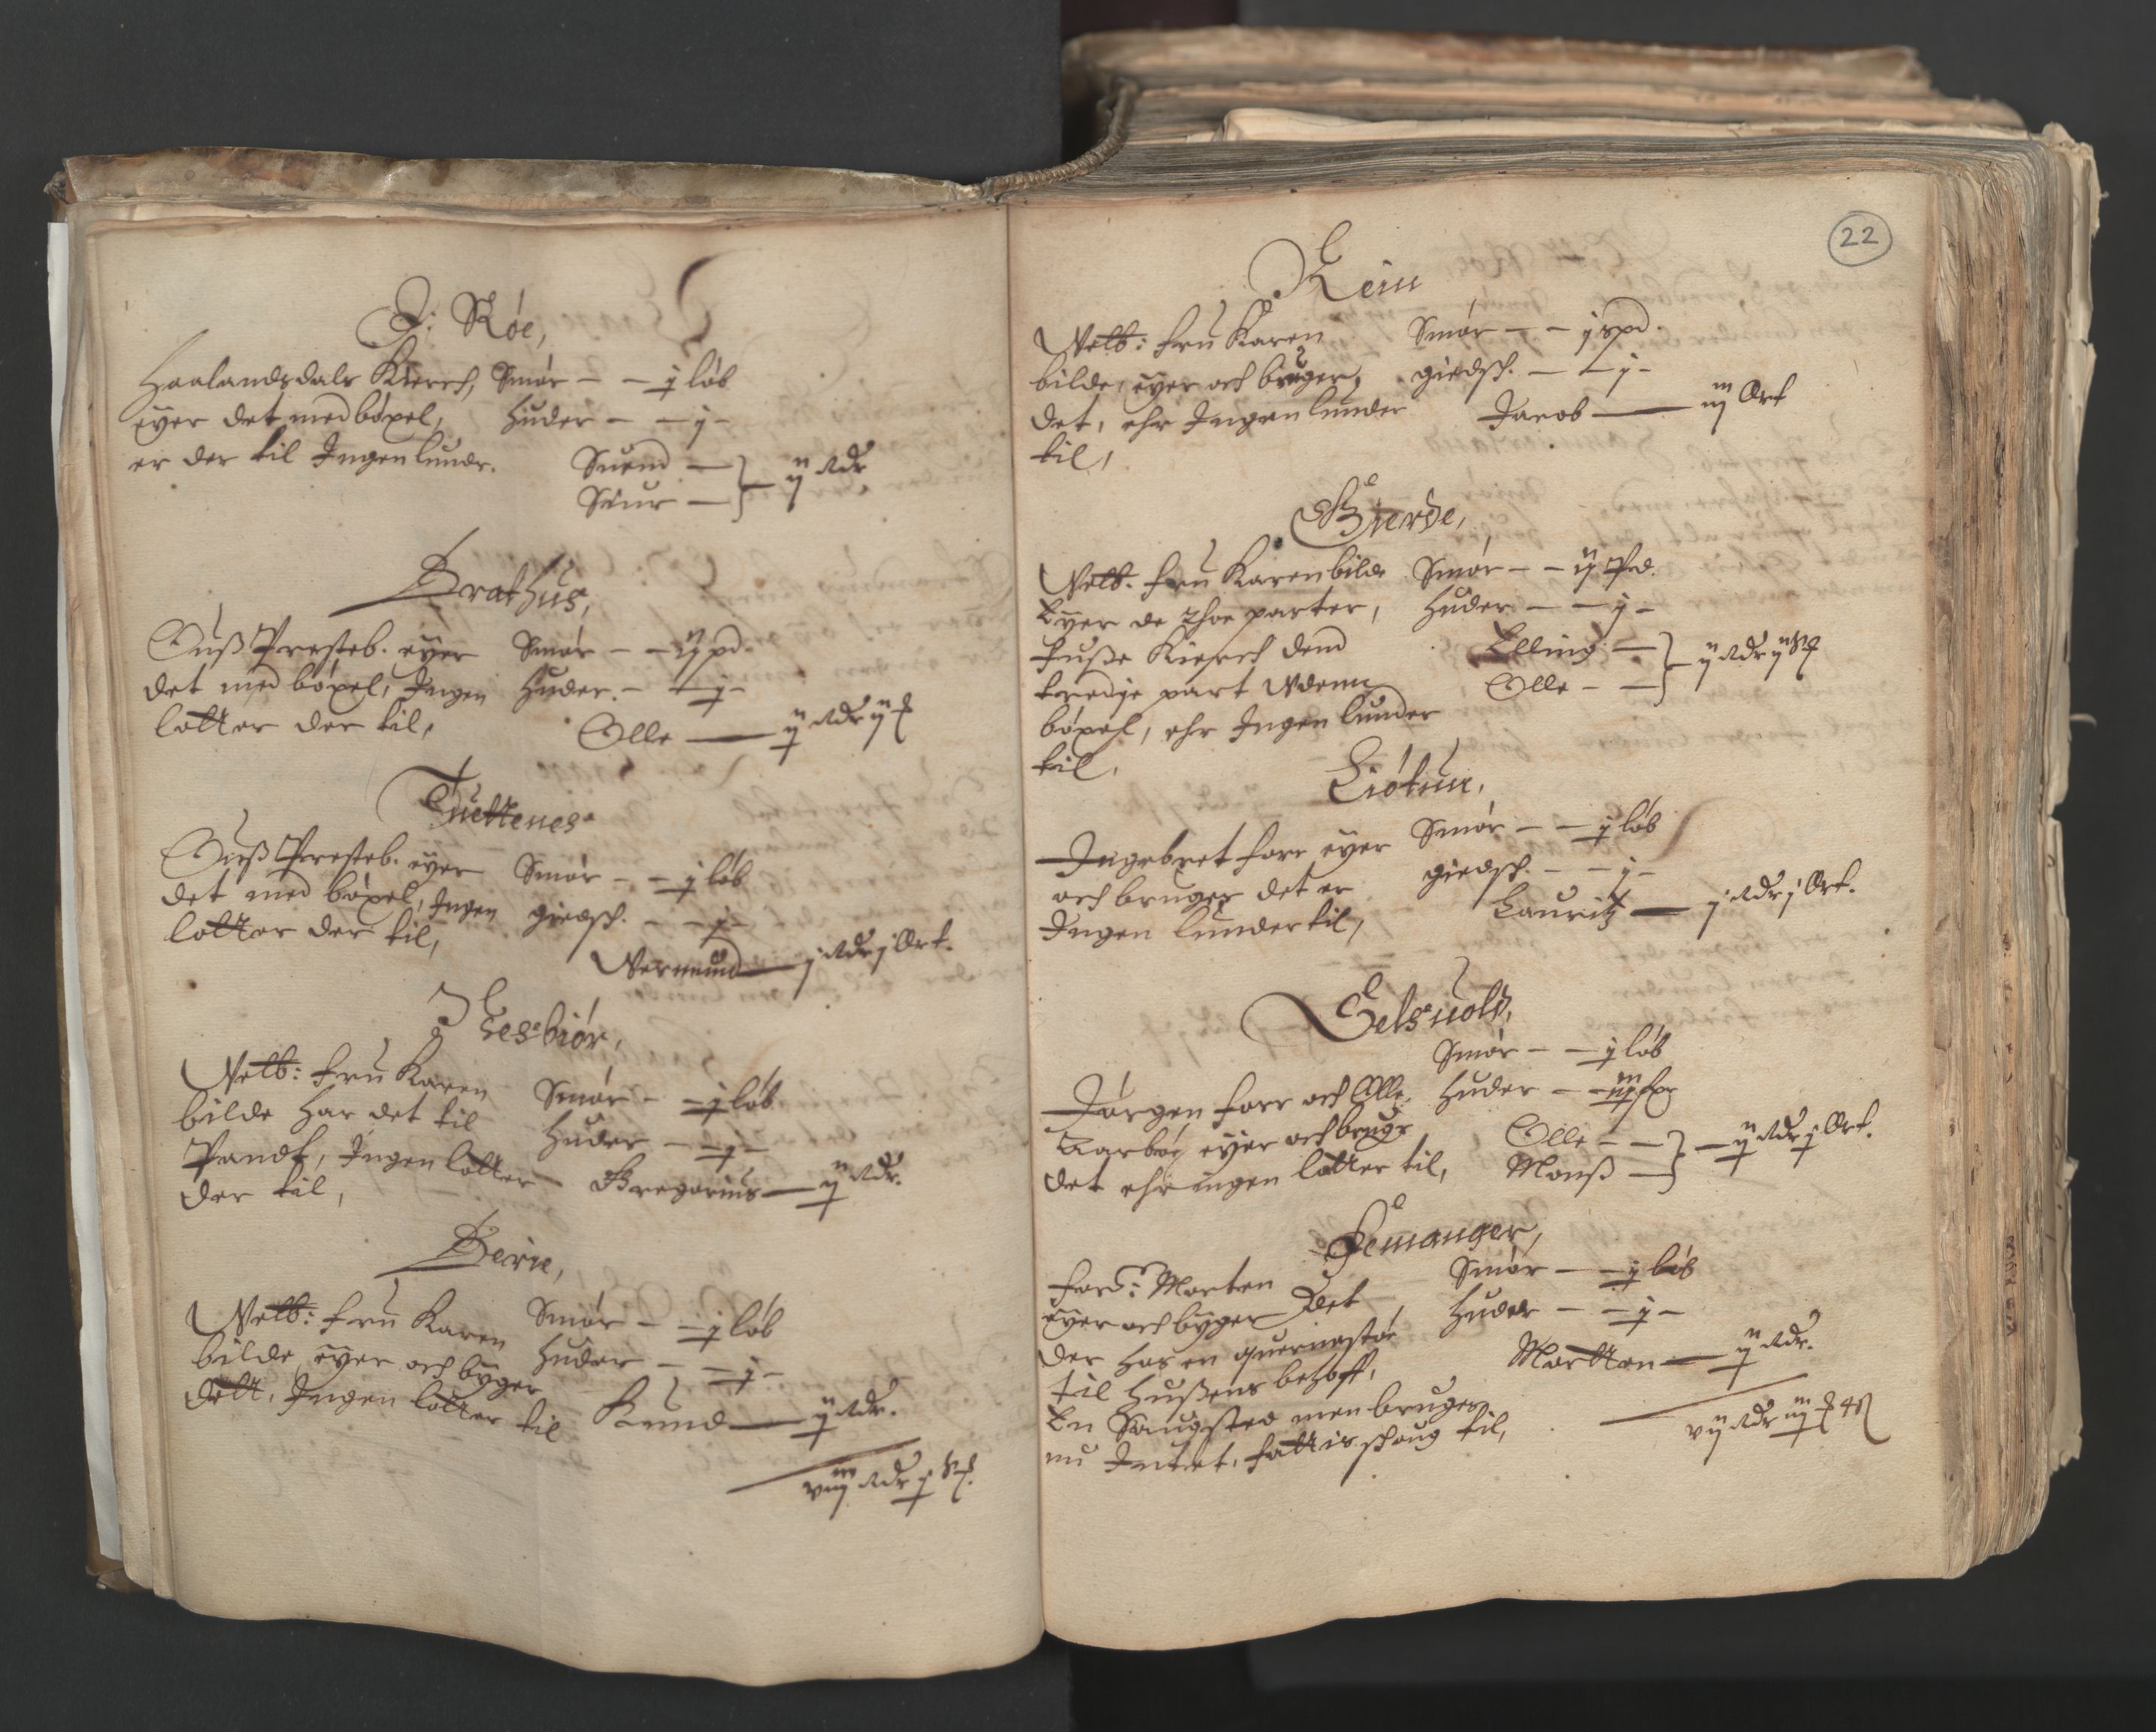 Ø: Røe,
Haalandsdals Kierch, Smør – – j løb
eyer det med bøxel, Huder – – j –
er der til Ingen lunde.
Suend —
Siur — } – ij Rdr
Brathus,
Ouß Presteb. eyer Smør – – ij pd.
det med bøxel, Ingen Huder. – – j –
lotter der til,
Olle — ij Rdr ij
Tuettenes
Ouß Presteb. eyer Smør – – j løb
det med bøxel, Ingen giedsk. – – j –
lotter der til,
Wermund — j Rdr j Ort.
Hesbiør,
Welb: fru Karen Smør – – j løb
bilde har det til Huder – – j –
Pandt, Ingen lotter
der til, Gregorius — ij Rdr.
Berie,
Welb: fru Karen Smør – – j løb
bilde eyer och byger Huder – – j –
dett, Ingen lotter til Knud — ij Rdr.
viij Rdr j
22
Rein
Welb: fru Karen Smør – – j spd.
bilde, eyer och bruger, giedsk. – – j –
det, ehr Ingen lunder Jacob — iij Ort
til,
Gierde,
Welb. fru Karen bilde Smør – – ij Pd.
Eyer de thoe parter, Huder – – j –
Fuße Kierch dend Elling —
tredie part Uden Olle – — } – ij Rdr ij
bøxel, ehr Ingen lunder
til,
Liøtun,
Ingebret farr eyer Smør – – j løb
och bruger det er giedsk. – – j –
Ingen lunder til, Lauritz — j Rdr j Ort.
Eelsuold,
Smør – – j løb
Jørgen farr och Olle Huder – – iij
Aarbøy eyer och bruger Olle – –
det ehr ingen lotter til, Monß — } – ij Rdr j Ort.
Gemanger,
ford: Morten Smør – – j løb
eyer och byger det Huder – – j –
der has en quernestøe
til Hußens behoff, Mortten — ij Rdr.
En Saugsted men bruges
nu Intet, fattis skoug til,
vij Rdr iij